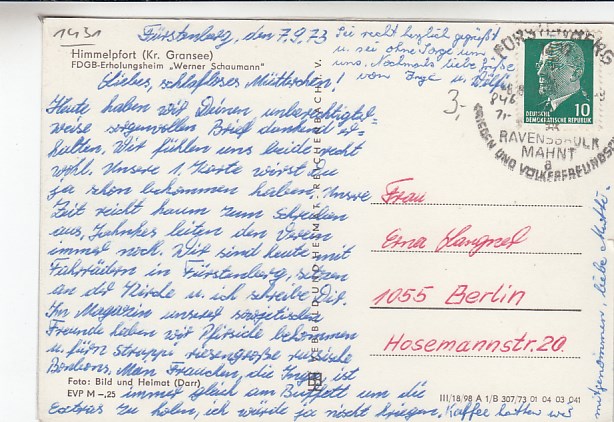 1431
Himmelpfort (Kr. Gransee)
FDGB-Erholungsheim „Werner Schaumann"
Fürstenberg, den 7.9.73
Liebes, schlafloses Muttichen!
Heute haben wir Deinen unberechtigter-
weise sorgenvollen Brief dankend er-
halten. Wir fühlen uns beide recht
wohl. Unsere 1. Karte wirst Du
ja schon bekommen haben. Unsre
Zeit reicht kaum zum Schreiben
aus, leiten den Verein
immer noch. Wir sind heute mit
Fahrrädern in Fürstenberg, sitzen
an der Kirche u. ich schreibe Dir.
Im Magazin unsrer sowjetischen
Freunde haben wir Pfirsiche bekommen
u. fürn Struppi riesengroße russische
Bonbons. Mein Frauchen, die Inge, ist
immer gleich am Buffett um die
Extras zu holen, ich würde ja nischt kriegen. Kaffee hatten wir
mitgenommen, liebe Mutti
Sei recht herzlich gegrüßt
u. sei ohne Sorge um
uns. Nochmals liebe Grüße
von Inge u. Willi
3,-
FÜRSTENBERG
RAVENSBRÜCK
MAHNT
a
FRIEDEN UND VÖLKERFREUNDSCHAFT
DEUTSCHE
DEMOKRATISCHE REPUBLIK
10
VEB BILD UND HEIMAT · REICHENBACH i. V.
Frau
Erna Langnel
1055 Berlin
Hosemannstr. 20
Foto: Bild und Heimat (Darr)
EVP M –,25
III/18/98 A 1/B 307/73 01 04 03 041